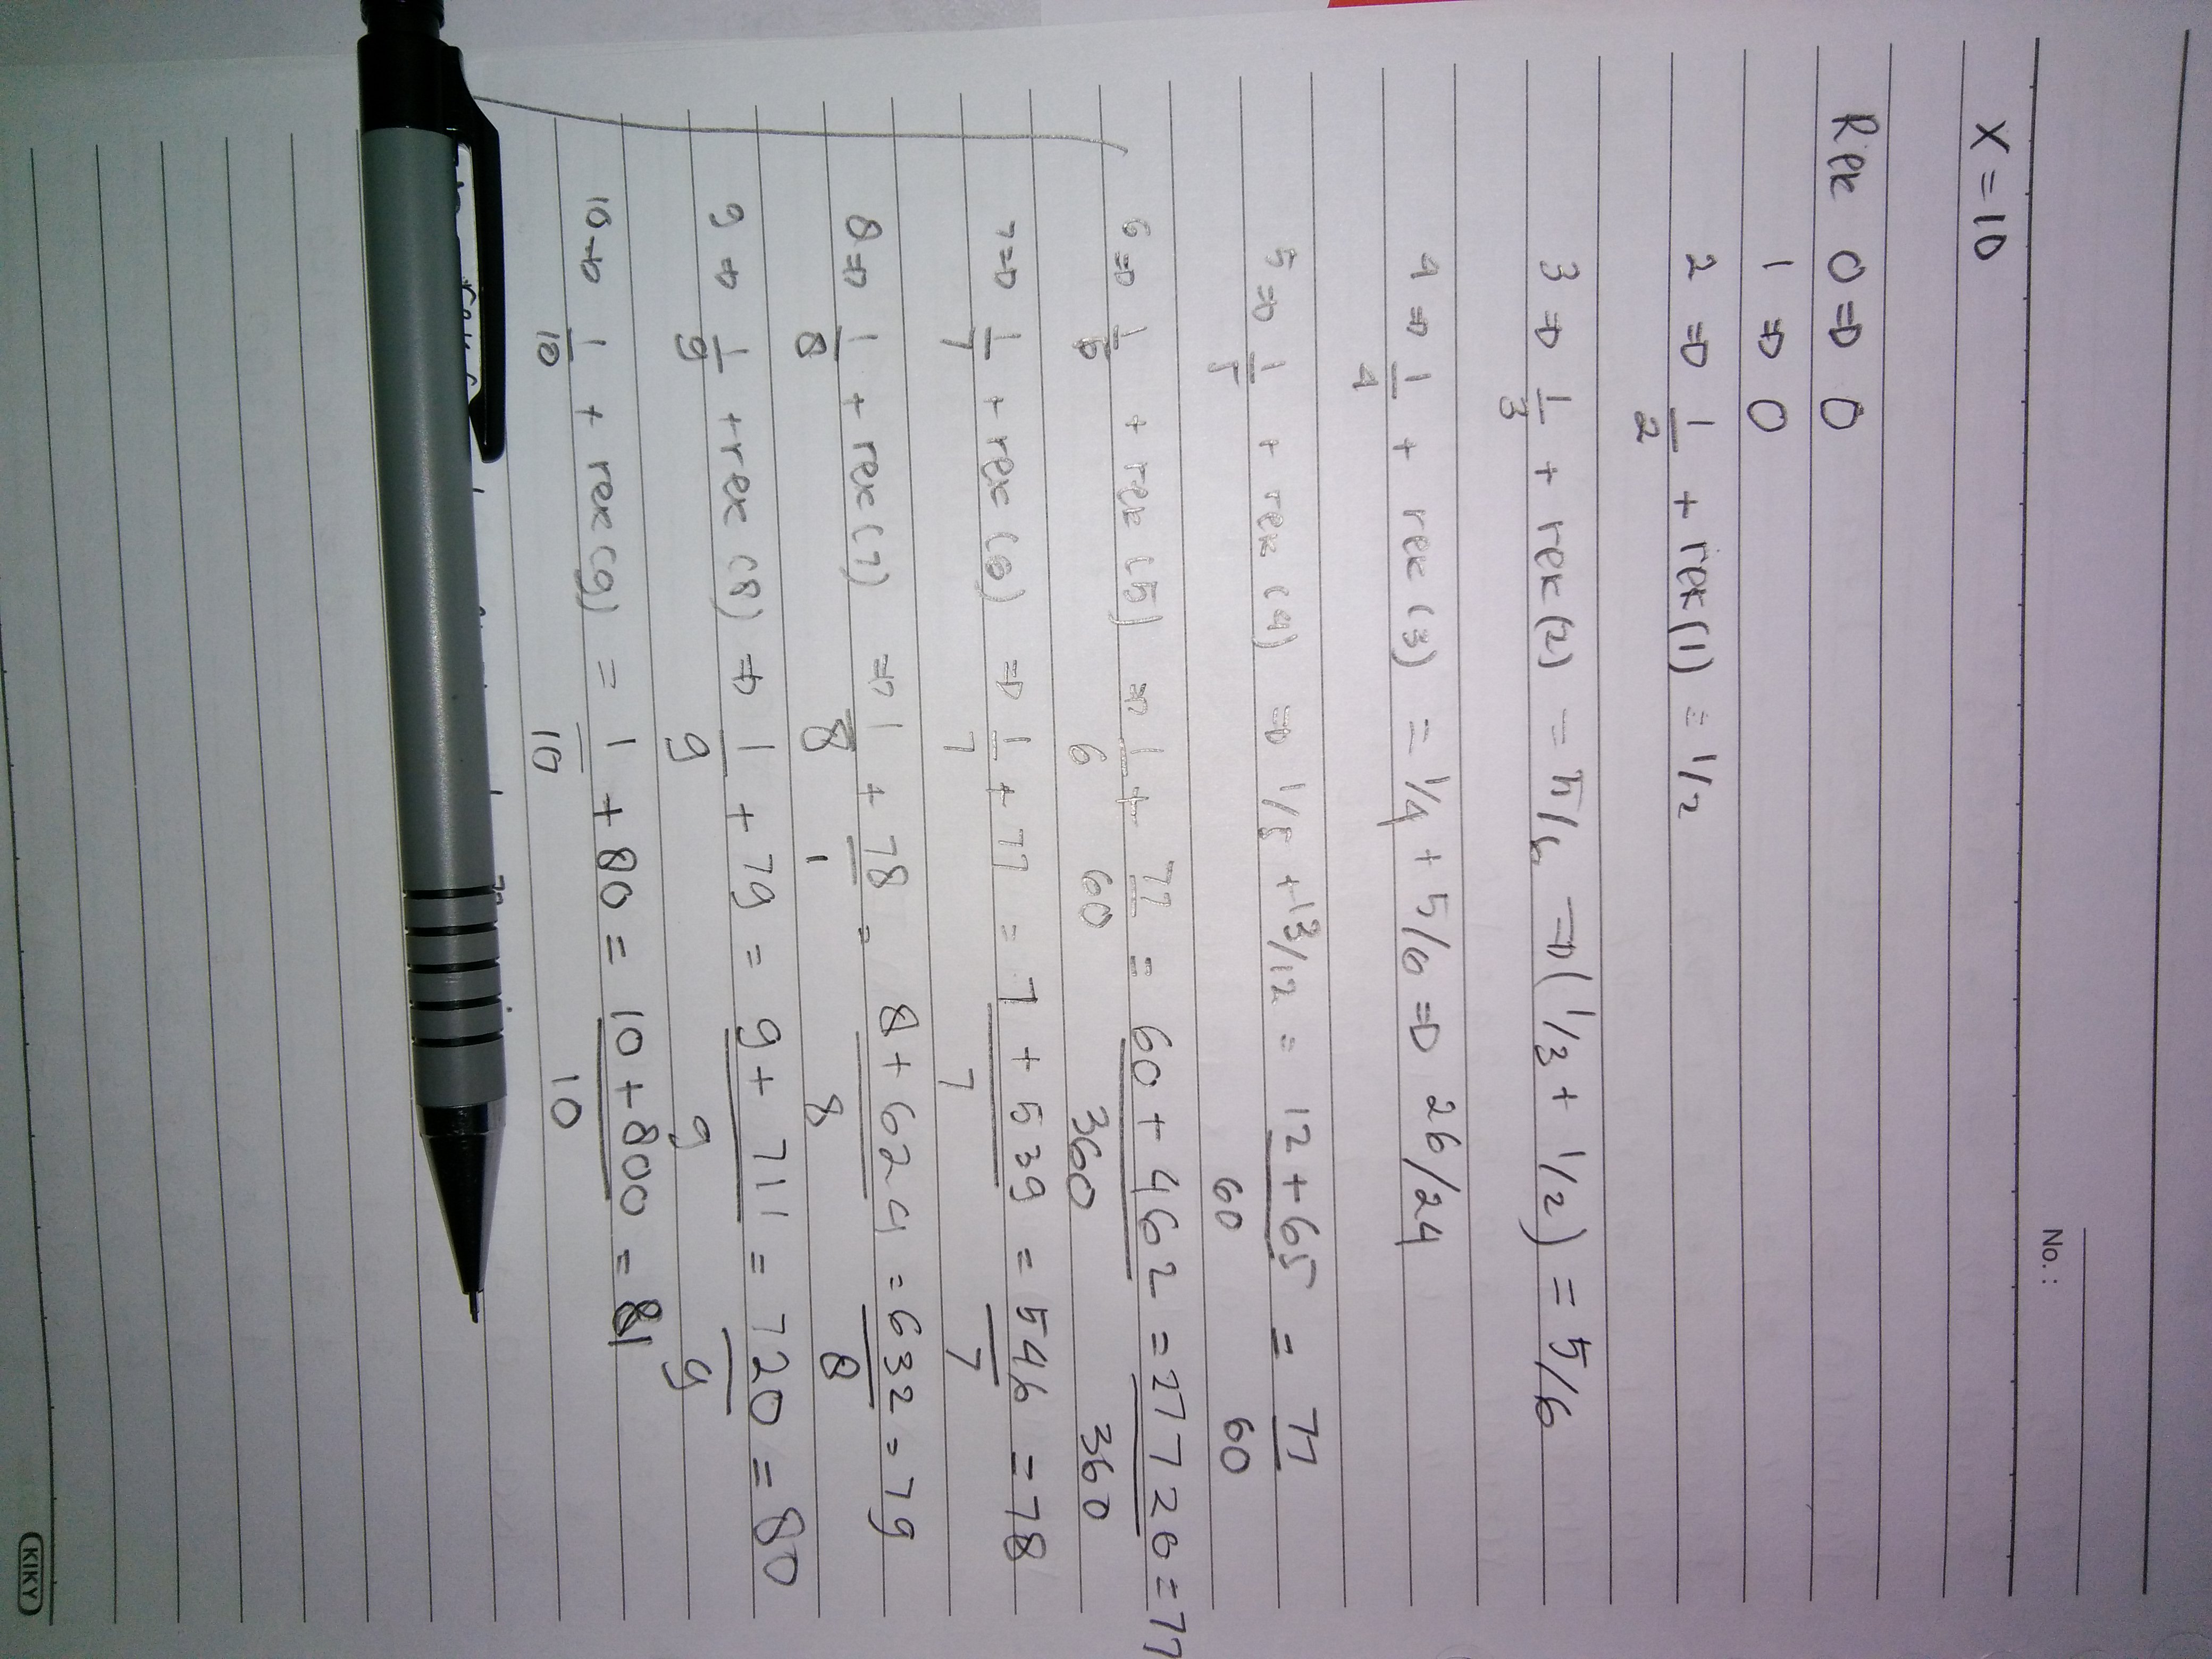 No. :
X = 10
Rek 0 => 0
1 => 0
2 => 1/2 + rek(1) = 1/2
3 => 1/3 + rek(2) = 5/6 => (1/3 + 1/2) = 5/6
4 => 1/4 + rek(3) = 1/4 + 5/6 => 26/24
5 => 1/5 + rek(4) => 1/5 + 13/12 = 12+65/60 = 77/60
6 => 1/6 + rek(5) => 1/6 + 77/60 = 60+462/360 = 27720/360 = 77
7 => 1/7 + rek(6) => 1/7 + 77 = 7+539/7 = 546/7 = 78
8 => 1/8 + rek(7) => 1/8 + 78/1 = 8+624/8 = 632/8 = 79
9 => 1/9 + rek(8) => 1/9 + 79 = 9+711/9 = 720/9 = 80
10 => 1/10 + rek(9) = 1/10 + 80 = 10+800/10 = 81
KIKY